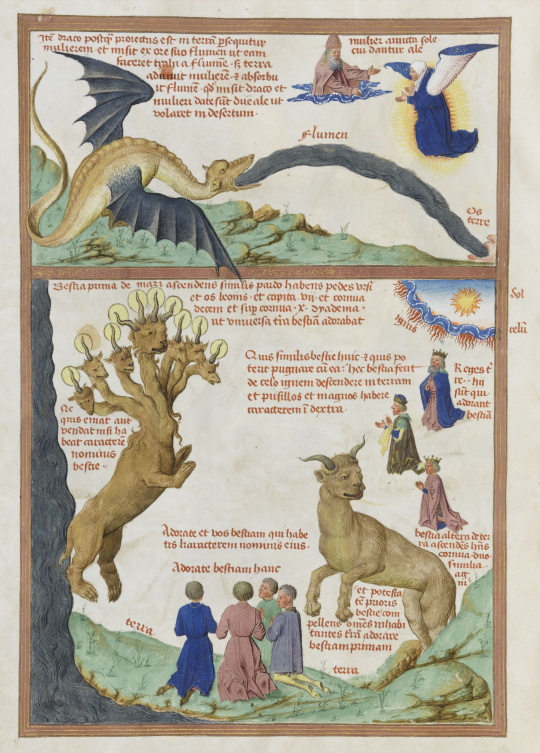 Itē draco postq̄ proiectus est in terrā p̄sequitur
mulierem et misit ex ore suo flumen ut eam
faceret trahi a flumīe · & terra
adiuvit mulierē · & absorbu
it flumen · qd̄ misit draco et
mulieri date sunt due ale ut
volaret in desertum ·
mulier amicta sole ·
cui dantur ale
flumen
Os
terre
Bestia prima de mari ascendens similis pardo habens pedes ursi
et os leonis · et capita · vii · et cornua
decem et sup cornua · x · dyadema ·
ut universa tr̄a bestiā adorabat
Sol
celū
ignis
Quis similis bestie huic & quis po
terit pugnare cū ea : hec bestia fecit
de celo ignem descendere in terram
et pusillos et magnos habere
caracterem ī dextra ·
Reges t̄
re · hii
sūt qui
adorant
bestiā
Ne
quis emat aut
vendat nisi ha
beat caracterē
nominis
bestie ·
Adorate et vos bestiam qui habe
tis karacterem nominis eius ·
Adorate bestiam hanc
bestia altera de ter
ra ascendēs hn̄s
cornua duo
similia
agni
et potesta
tē prioris
bestie com
pellens om̄es inhabi
tantes tr̄ā adorare
bestiam primam
terra
terra